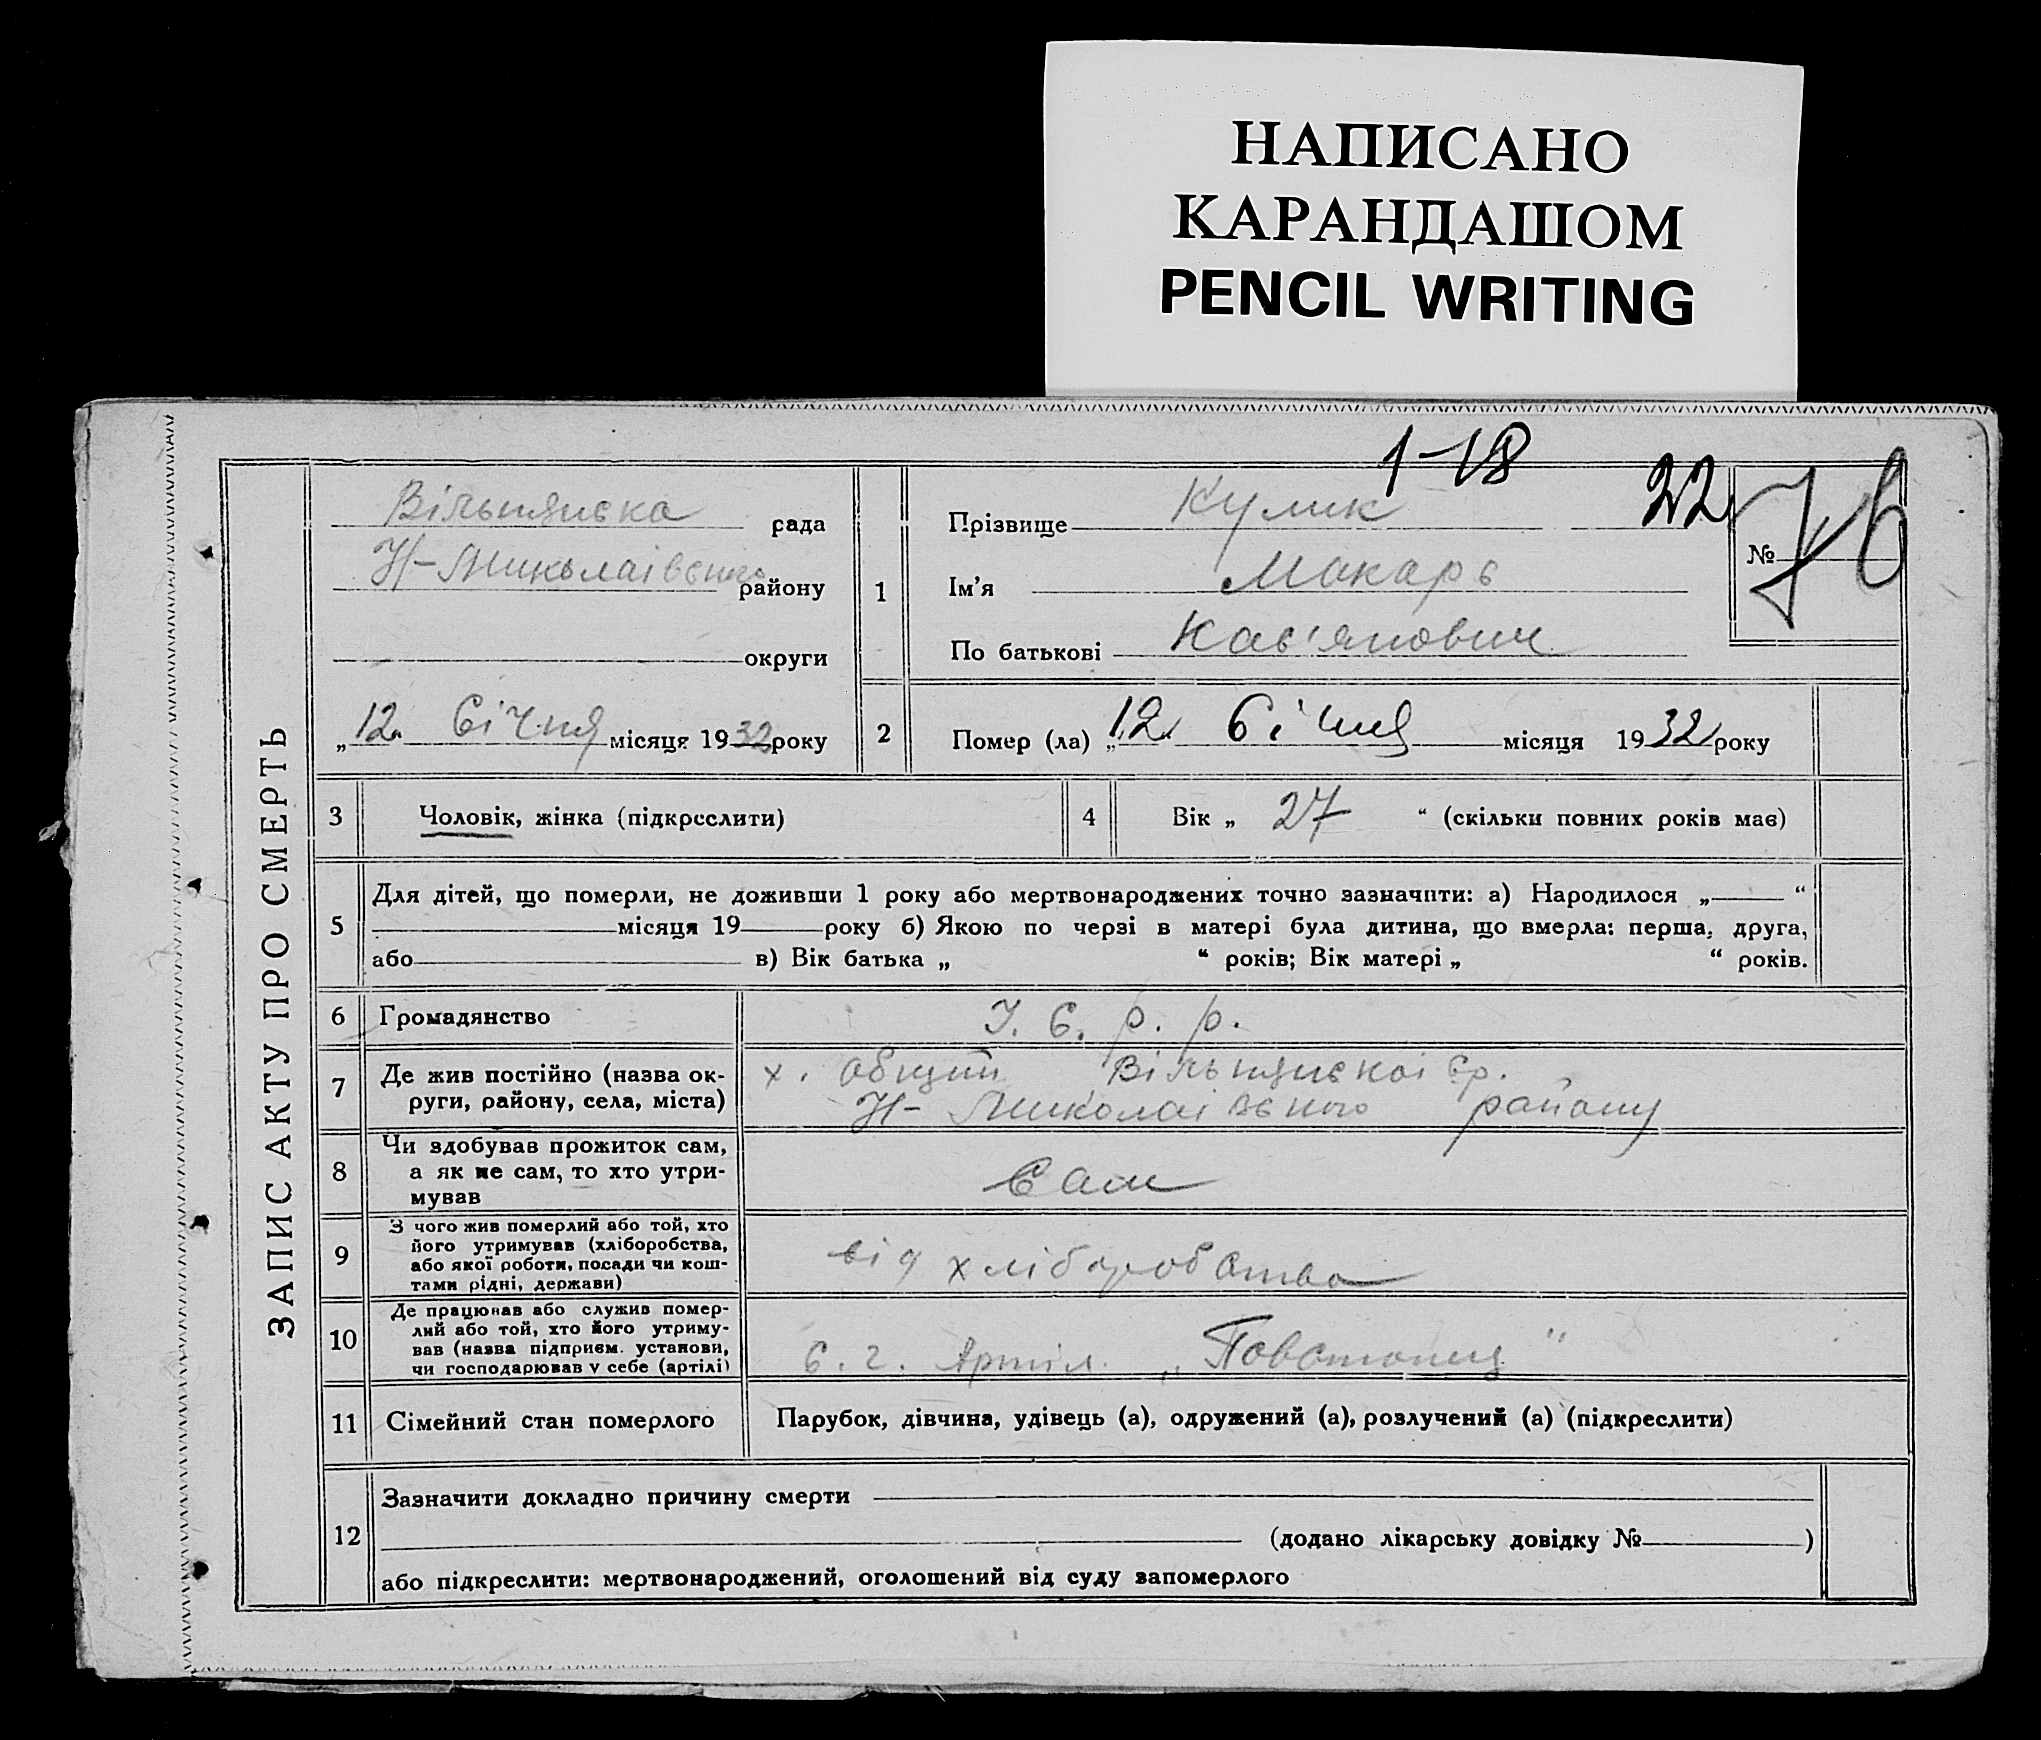 НАПИСАНО
КАРАНДАШОМ
PENCIL WRITING
1-18
22
ЗАПИС АКТУ ПРО СМЕРТЬ
Вільнянська рада
Н-Миколаівського району
округи
„12" Січня місяця 1932 року
1
Прізвище Кулик
Ім'я Макарь
По батькові Кас'янович
№ 76
2
Помер (ла) „12" Січня місяця 1932 року
3 Чоловік, жінка (підкреслити)
4 Вік „ 27 “ (скільки повних років має)
5
Для дітей, що померли, не доживши 1 року або мертвонароджених точно зазначити: а) Народилося „ “
місяця 19 року б) Якою по черзі в матері була дитина, що вмерла: перша, друга,
або в) Вік батька „ “ років; Вік матері „ “ років.
6 Громадянство У. С. р. р.
7 Де жив постійно (назва ок-
руги, району, села, міста)
х. Вільнянськоі ср.
Н- Миколаівського району
8 Чи здобував прожиток сам,
а як не сам, то хто утри-
мував
Сам
9 З чого жив померлий або той, хто
його утримував (хліборобства,
або якої роботи, посади чи кош-
тами рідні, держави)
від хліборобства
10 Де працював або служив помер-
лий або той, хто його утриму-
вав (назва підприєм. установи,
чи господарював у себе (артілі)
С. г. Артіл.
11 Сімейний стан померлого Парубок, дівчина, удівець (а), одружений (а), розлучений (а) (підкреслити)
12
Зазначити докладно причину смерти
(додано лікарську довідку № )
або підкреслити: мертвонароджений, оголошений від суду запомерлого